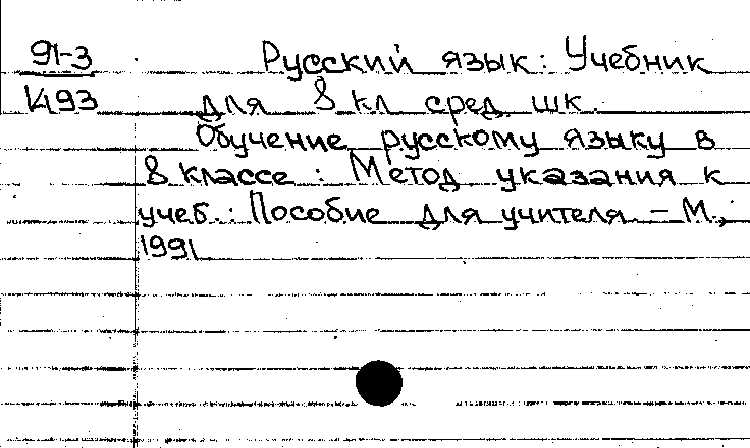 91-3 Русский язык: Учебник
1493 для 8 кл сред. шк.
Обучение русскому языку в
8 классе : Метод указания к
учеб.: Пособие для учителя. – М.,
1991